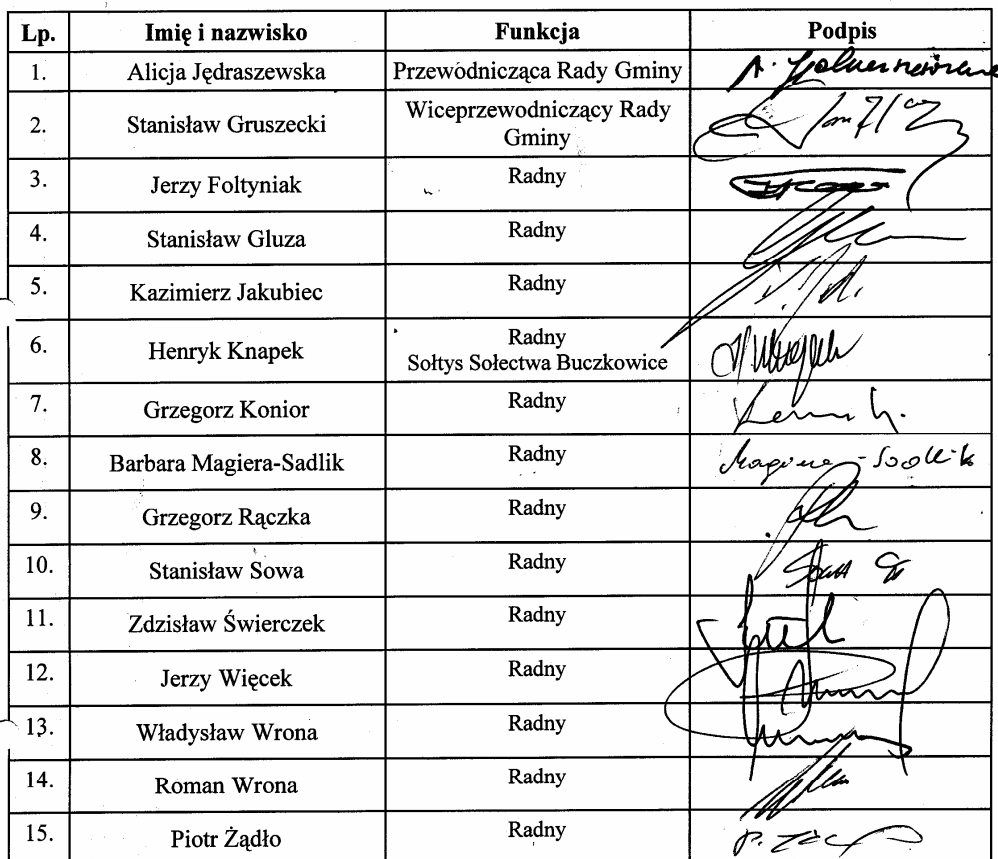 Lp. Imię i nazwisko Funkcja Podpis
1. Alicja Jędraszewska Przewodnicząca Rady Gminy
2. Stanisław Gruszecki Wiceprzewodniczący Rady
Gminy
3. Jerzy Foltyniak Radny
4. Stanisław Gluza Radny
5. Kazimierz Jakubiec Radny
6. Henryk Knapek Radny
Sołtys Sołectwa Buczkowice
7. Grzegorz Konior Radny
8. Barbara Magiera-Sadlik Radny
9. Grzegorz Rączka Radny
10. Stanisław Sowa Radny
11. Zdzisław Świerczek Radny
12. Jerzy Więcek Radny
13. Władysław Wrona Radny
14. Roman Wrona Radny
15. Piotr Żądło Radny